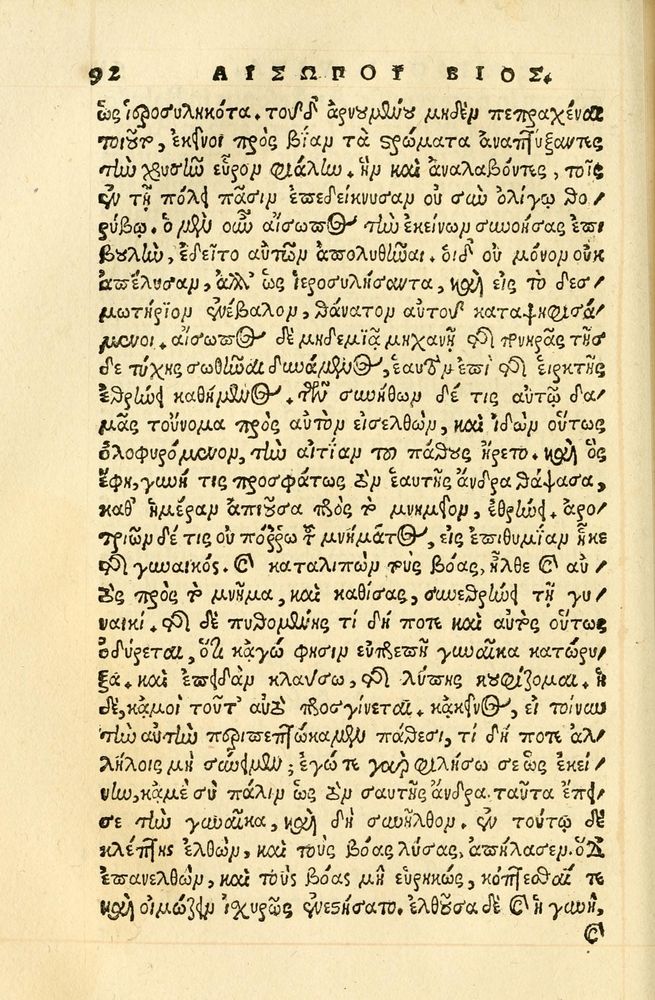 92 ΑΙΣΩΠΟΥ ΒΙΟΣ.
ὡς ἱεροσυληκότα. τοῦ δ᾽ ἀρνουμένου μηδὲν πεπραχέναι
τοιοῦτον, ἐκεῖνοι πρὸς βίαν τὰ στρώματα ἀναπτύξαντες
τὴν χρυσῆν εὗρον φιάλην. ἣν καὶ ἀναλαβόντες, τοῖς
ἐν τῇ πόλει πᾶσιν ἐπεδείκνυσαν οὐ σὺν ὀλίγῳ θο/
ρύβῳ. ὁ μὲν οὖν αἴσωπος τὴν ἐκείνων συνοήσας ἐπι
βουλὴν, ἐδεῖτο αὐτῶν ἀπολυθῆναι. οἱ δ᾽ οὐ μόνον οὐκ
ἀπέλυσαν, ἀλλ᾽ ὡς ἱεροσυλήσαντα, καὶ εἰς τὸ δεσ/
μωτήριον ἐνέβαλον, θάνατον αὐτοῦ καταψηφισά/
μενοι. αἴσωπος δὲ μηδεμιᾷ μηχανῇ τῆς πονηρᾶς τῆσ
δε τύχης σωθῆναι δυνάμενος, ἑαυτὸν ἐπὶ τῆς εἱρκτῆς
ἐθρήνει καθήμενος. τῶν συνήθων δέ τις αὐτῷ δα/
μᾶς τοὔνομα πρὸς αὐτὸν εἰσελθὼν, καὶ ἰδὼν οὕτως
ὀλοφυρόμενον, τὴν αἰτίαν τοῦ πάθους ἤρετο. καὶ ὃς
ἔφη, γυνή τις προσφάτως τὸν ἑαυτῆς ἄνδρα θάψασα,
καθ᾽ ἡμέραν ἀπιοῦσα πρὸς τὸ μνημεῖον, ἐθρήνει. ἀρο/
τριῶν δέ τις οὐ πόρρω τοῦ μνήματος, εἰς ἐπιθυμίαν ἧκε
τῆς γυναικός. καὶ καταλιπὼν τοὺς βόας, ἦλθε καὶ αὐ/
τὸς πρὸς τὸ μνῆμα, καὶ καθίσας, συνεθρήνει τῇ γυ/
ναικί. τῆς δὲ πυθομένης τί δή ποτε καὶ αὐτὸς οὕτως
ὀδύρεται, ὅτι κἀγώ φησιν εὐπρεπῆ γυναῖκα κατώρυ/
ξα. καὶ ἐπειδὰν κλαύσω, τῆς λύπης κουφίζομαι. ἡ
δὲ, κἀμοὶ τοῦτ᾽ αὐτὸ προσγίνεται. κἀκεῖνος, εἰ τοίνυν
τὴν αὐτὴν περιπεπτώκαμεν πάθεσι, τί δή ποτε ἀλ/
λήλοις μὴ σύνειμεν; ἐγώ τε γὰρ φιλήσω σε ὡς ἐκεί/
νην, κἀμὲ σὺ πάλιν ὡς τὸν σαυτῆς ἄνδρα. ταῦτα ἔπει/
σε τὴν γυναῖκα, καὶ δὴ συνῆλθον. ἐν τούτῳ δὲ
κλέπτης ἐλθὼν, καὶ τοὺς βόας λύσας, ἀπήλασεν. ὁ δ᾽
ἐπανελθὼν, καὶ τοὺς βόας μὴ εὑρηκὼς, κόπτεσθαί τε
καὶ οἰμώζειν ἰσχυρῶς ἐνεστήσατο. ἐλθοῦσα δὲ καὶ ἡ γυνὴ,
καὶ